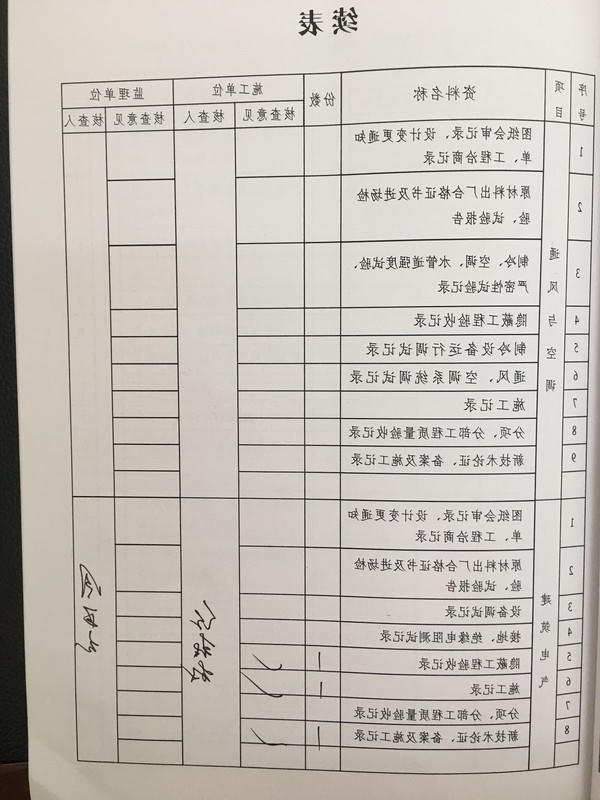 续表
序号 项目 资料名称 份数 施工单位 监理单位
核查意见 核查人 核查意见 核查人
通风与空调
1 图纸会审记录、设计变更通知
单、工程洽商记录
2 原材料出厂合格证书及进场检
验、试验报告
3 制冷、空调、水管道强度试验、
严密性试验记录
4 隐蔽工程验收记录
5 制冷设备运行调试记录
6 通风、空调系统调试记录
7 施工记录
8 分项、分部工程质量验收记录
9 新技术论证、备案及施工记录
建筑电气
1 图纸会审记录、设计变更通知
单、工程洽商记录
2 原材料出厂合格证书及进场检
验、试验报告
3 设备调试记录
4 接地、绝缘电阻测试记录
5 隐蔽工程验收记录 一 ✓
6 施工记录 一 ✓
7 分项、分部工程质量验收记录
8 新技术论证、备案及施工记录 一 ✓